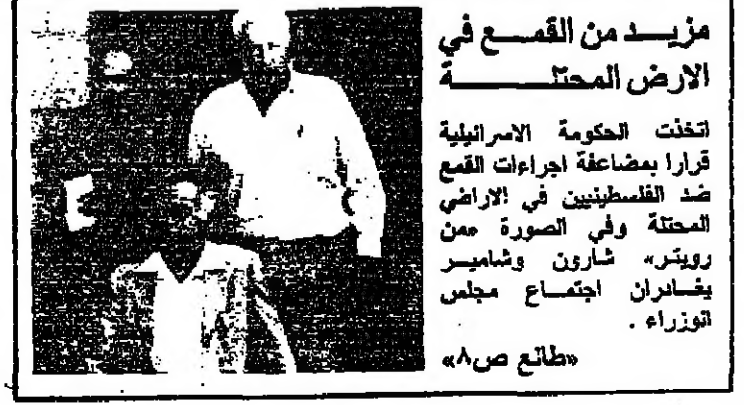 مزيد من القمع في
الارض المحتلة
اتخذت الحكومة الاسرائيلية
قرارا بمضاعفة اجراءات القمع
ضد الفلسطينيين في الاراضي
المحتلة وفي الصورة «من
رويتر» شارون وشامير
يغادران اجتماع مجلس
الوزراء .
«طالع ص٨»